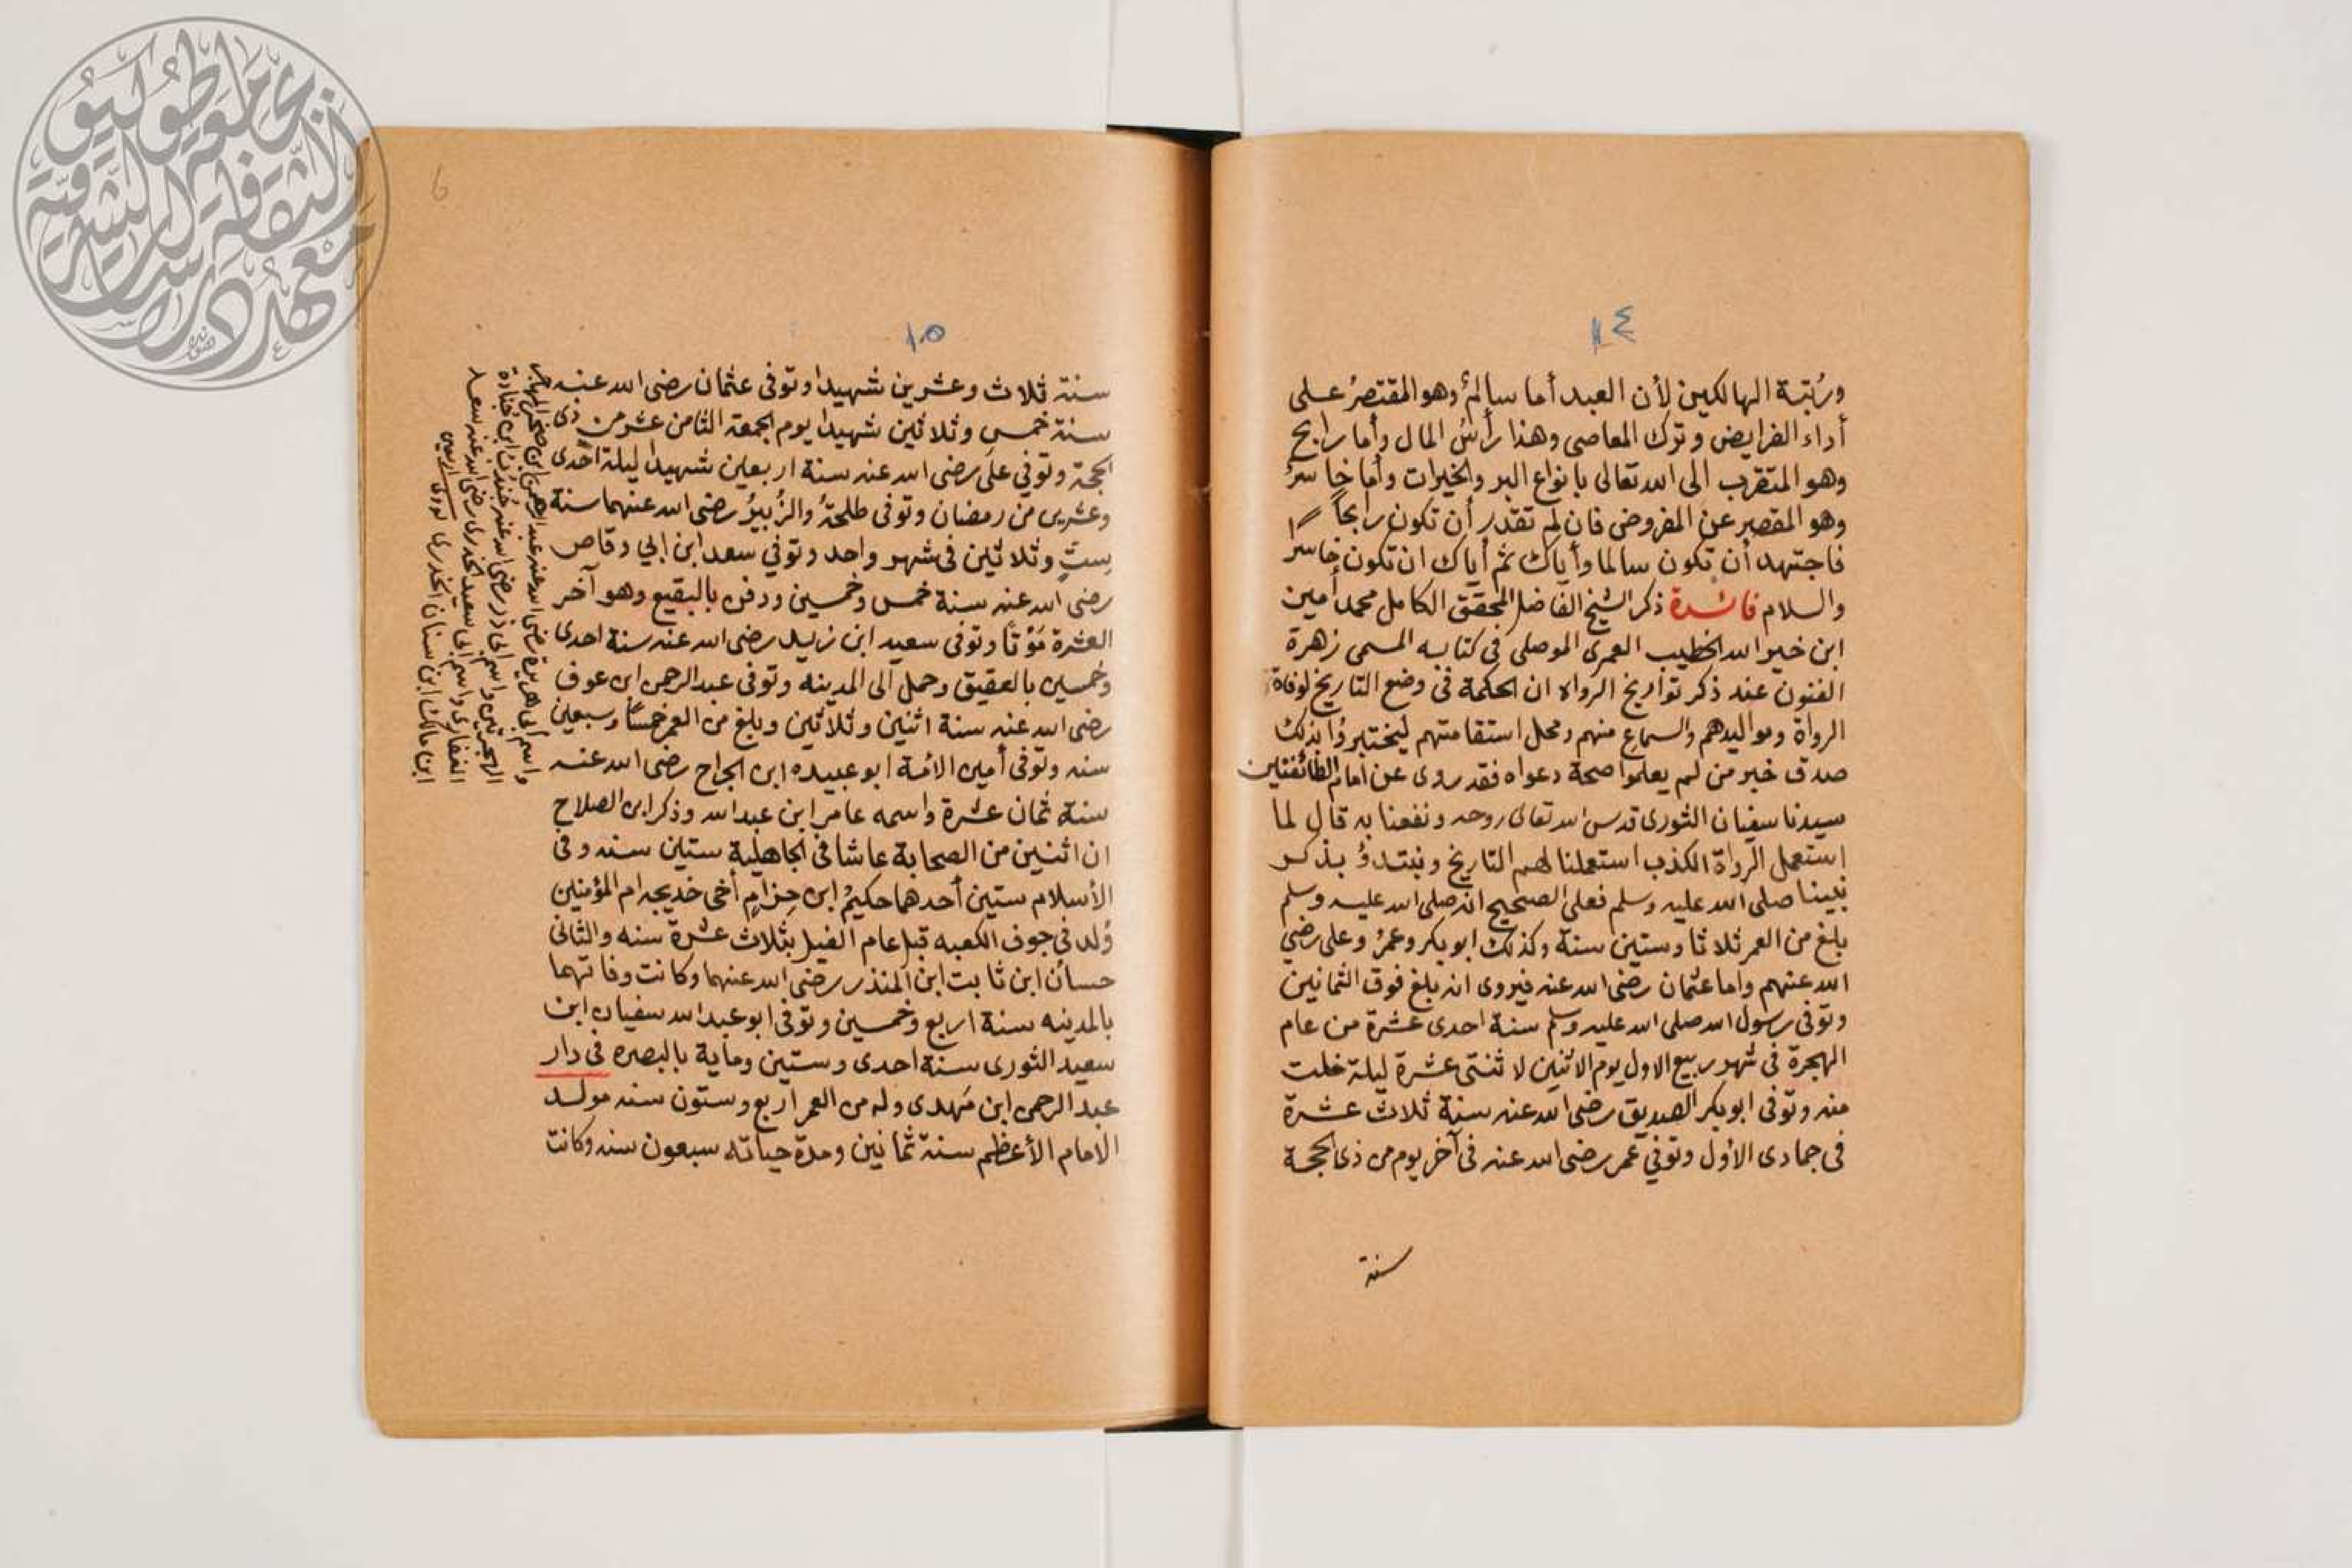 ١٤
ورُتبة الهالكين لأن العبد أما سالمٌ وهو المقتصرُ على
أداء الفرايض وترك المعاصى وهذا رأسُ المال وأما رابح
وهو المتقرب الى الله تعالى بانواع البر والخيرات وأما خاسرٌ
وهو المقصر عن المفروض فان لم تقدر أن تكون رابحاً
فاجتهد أن تكون سالما وأياك ثم أياك ان تكون خاسراً
والسلام فائدة ذكر الشيخ الفاضل المحقق الكامل محمد أمين
ابن خير الله الخطيب العمرى الموصلى فى كتابه المسمى زهرة
الفنون عند ذكر تواريخ الرواه ان الحكمة فى وضع التاريخ لوفاة
الرواة ومواليدهم والسماع منهم ومحل استقامتهم ليختبروُا بذلك
صدق خبر من لم يعلموا صحة دعواه فقد روى عن امام الطائفتين
سيدنا سفيان الثورى قدس الله تعالى روحه ونفعنا به قال لما
استعمل الرواة الكذب استعملنا لهم التاريخ ونبتدؤ بذكر
نبينا صلى الله عليه وسلم فعلى الصحيح انه صلى الله عليه وسلم
بلغ من العمر ثلاثا وستين سنة وكذلك ابو بكر وعمرُ وعلى رضي
الله عنهم واما عثمان رضى الله عنه فيروى انه بلغ فوق الثمانين
وتوفى رسول الله صلى الله عليه وسلم سنة احدى عشرة من عام
الهجرة فى شهر ربيع الاول يوم الاثنين لاثنتى عشرة ليلة خلت
منه وتوفى ابو بكر الصديق رضى الله عنه سنة ثلاث عشرة
فى جمادى الأول وتوفي عمر رضى الله عنه فى آخر يوم من ذى الحجة
سنة
١٥
سنة ثلاث وعشرين شهيدا وتوفى عثمان رضى الله عنه
سنة خمس وثلاثين شهيدا يوم الجمعة الثامن عشر من ذى
الحجة وتوفي على رضى الله عنه سنة اربعين شهيدا ليلة احدى
وعشرين من رمضان وتوفى طلحةُ والزُبيرُ رضى الله عنهما سنة
ستٍ وثلاثين فى شهر واحد وتوفي سعد ابن ابي وقاص
رضى الله عنه سنة خمس وخمسين ودفن بالبقيع وهو آخر
العشرة مَوْتًا وتوفى سعيد ابن زيد رضى الله عنه سنة احدى
وخمسين بالعقيق وحمل الى المدينه وتوفى عبد الرحمن ابن عوف
رضى الله عنه سنة اثنين وثلاثين وبلغ من العمر خمساً وسبعين
سنه وتوفى أمين الأمة ابو عبيده ابن الجراح رضى الله عنه
سنة ثمان عشرة واسمه عامر ابن عبد الله وذكر ابن الصلاح
ان اثنين من الصحابة عاشا فى الجاهلية ستين سنه وفى
الأسلام ستين أحدهما حكيمُ ابن حِزامٍ أخى خديجه ام المؤمنين
وُلد فى جوف الكعبه قبل عام الفيل بثلاث عشرة سنه والثانى
حسان ابن ثابت ابن المنذر رضى الله عنهما وكانت وفاتهما
بالمدينه سنة اربع وخمسين وتوفى ابو عبد الله سفيان ابن
سعيد الثورى سنة احدى وستين وماية بالبصره فى دار
عبد الرحمن ابن مَهدى وله من العمر اربع وستون سنه مولد
الامام الأعظم سنة ثمانين ومدة حياته سبعون سنه وكانت
واسم ابى هريرة رضى الله عنه عبد الرحمن ابن صخر
واسم ابى ذر رضى الله عنه جُندُب ابن جُنادة
الغفارى واسم ابى سعيد الخدرى رضى الله عنه سعد
ابن مالك ابن سنان الخدرى
6
جامعة طوكيو
معهد دراسات الثقافة الشرقية